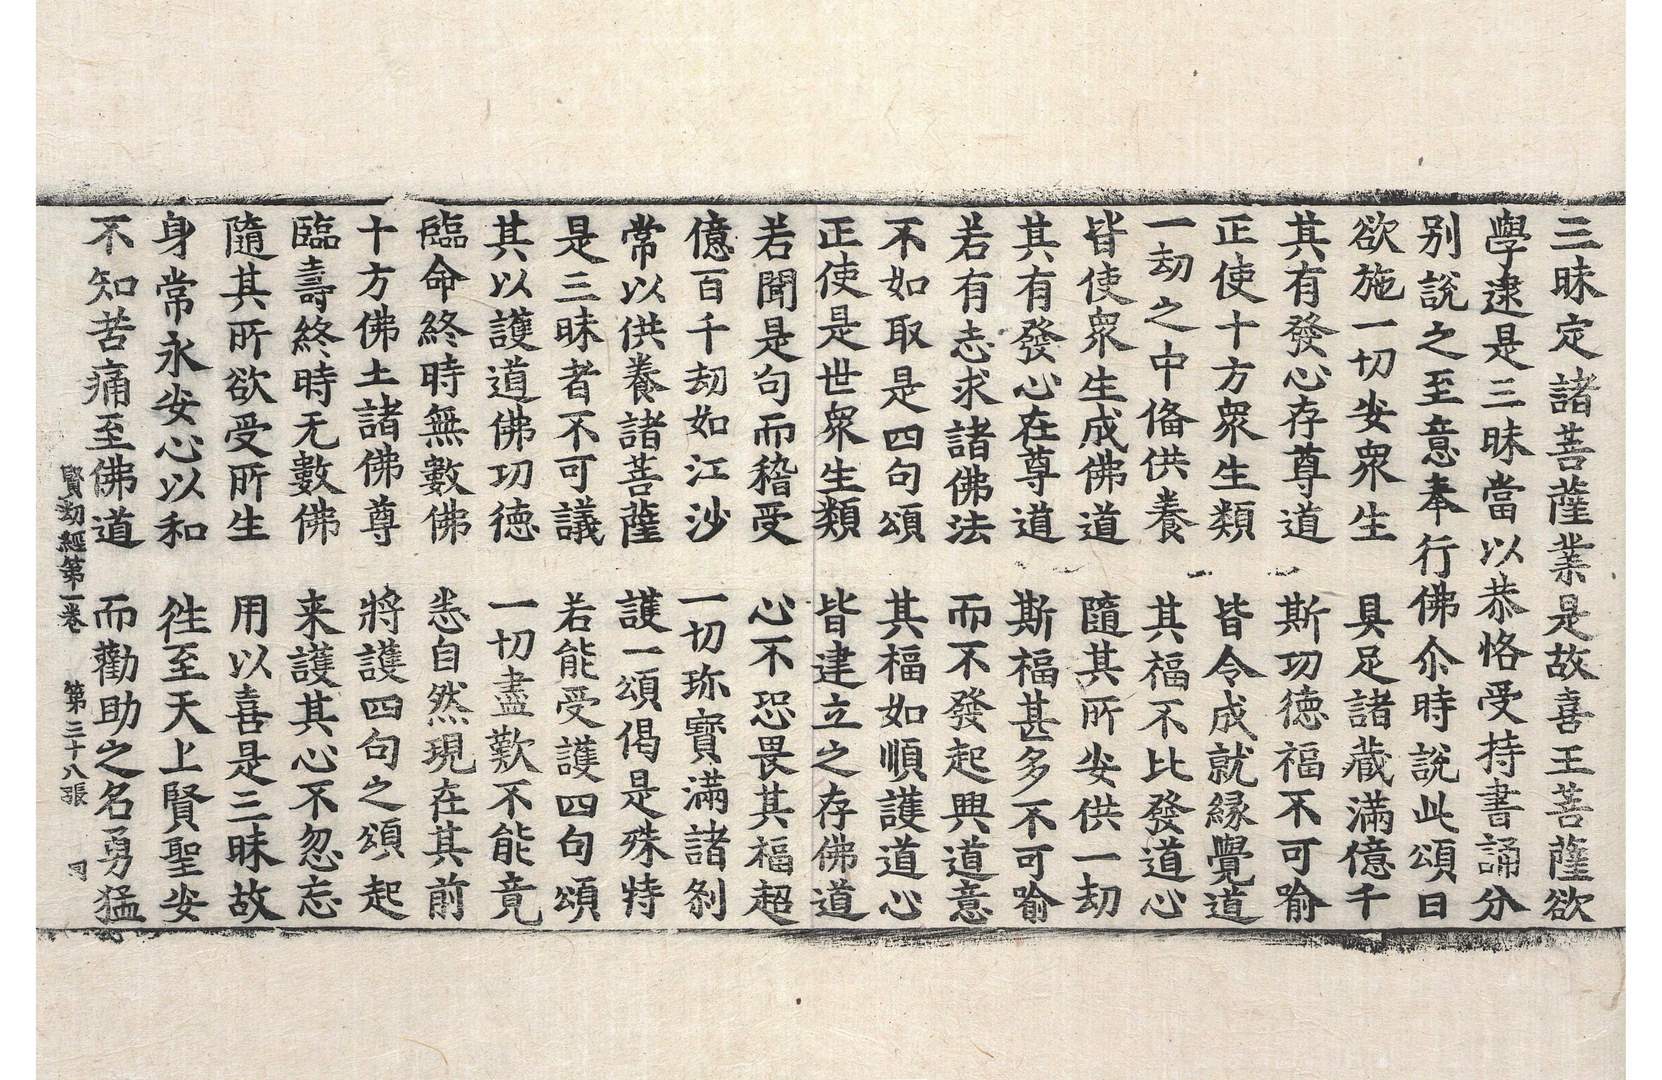 三昧定諸菩薩業是故喜王菩薩欲
學逮是三昧當以恭恪受持書誦分
別說之至意奉行佛尒時說此頌曰
欲施一切安衆生　具足諸藏滿億千
其有發心存尊道　斯功德福不可喻
正使十方衆生類　皆令成就緣覺道
一劫之中俻供養　其福不比發道心
皆使衆生成佛道　隨其所安供一劫
其有發心在尊道　斯福甚多不可喻
若有志求諸佛法　而不發起興道意
不如取是四句頌　其福如順護道心
正使是世衆生類　皆建立之存佛道
若聞是句而稽受　心不恐畏其福超
億百千劫如江沙　一切珎寳滿諸刹
常以供養諸菩薩　護一頌偈是殊特
是三昧者不可議　若能受護四句頌
其以護道佛功德　一切盡歎不能竟
臨命終時無數佛　悉自然現在其前
十方佛土諸佛尊　將護四句之頌起
臨壽終時无數佛　来護其心不忽忘
隨其所欲受所生　用以喜是三昧故
身常永安心以和　往至天上賢聖安
不知苦痛至佛道　而勸助之名勇猛
賢劫經第一卷　第三十八張　同